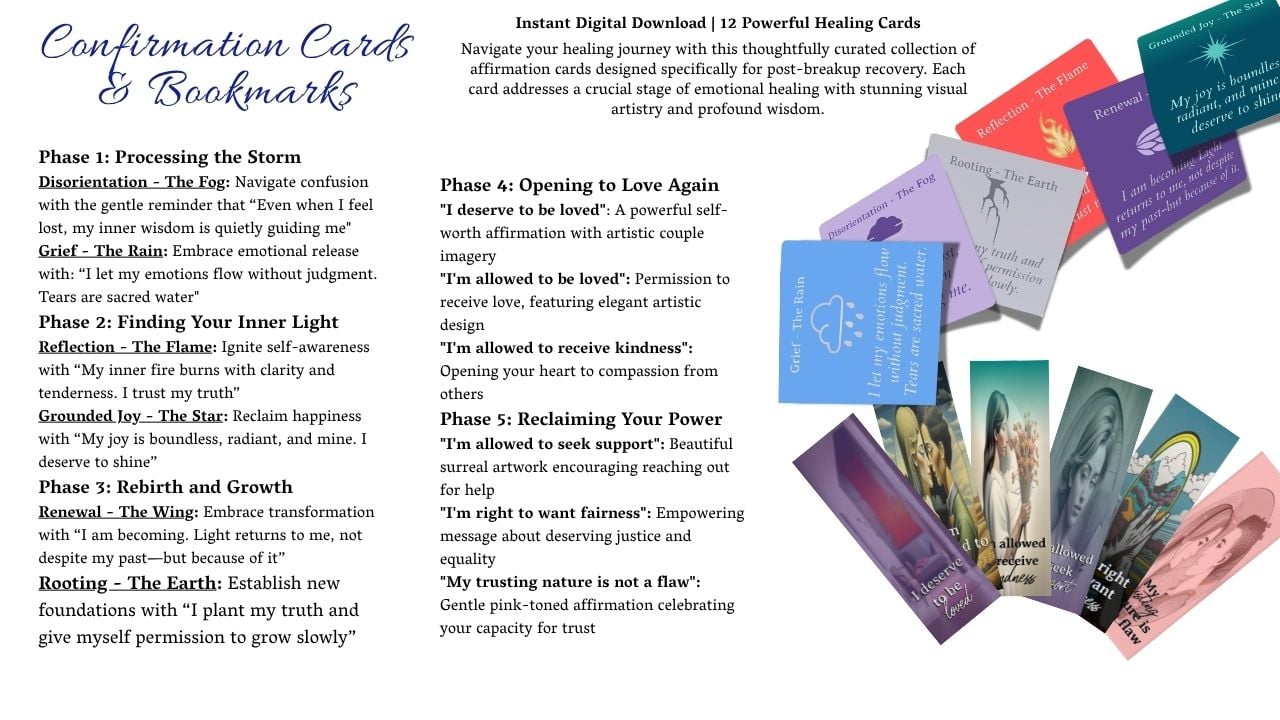 Confirmation Cards
& Bookmarks
Instant Digital Download | 12 Powerful Healing Cards
Navigate your healing journey with this thoughtfully curated collection of
affirmation cards designed specifically for post-breakup recovery. Each
card addresses a crucial stage of emotional healing with stunning visual
artistry and profound wisdom.
Phase 1: Processing the Storm
Disorientation - The Fog: Navigate confusion
with the gentle reminder that “Even when I feel
lost, my inner wisdom is quietly guiding me"
Grief - The Rain: Embrace emotional release
with: “I let my emotions flow without judgment.
Tears are sacred water"
Phase 2: Finding Your Inner Light
Reflection - The Flame: Ignite self-awareness
with “My inner fire burns with clarity and
tenderness. I trust my truth”
Grounded Joy - The Star: Reclaim happiness
with “My joy is boundless, radiant, and mine. I
deserve to shine”
Phase 3: Rebirth and Growth
Renewal - The Wing: Embrace transformation
with “I am becoming. Light returns to me, not
despite my past—but because of it”
Rooting - The Earth: Establish new
foundations with “I plant my truth and
give myself permission to grow slowly”
Phase 4: Opening to Love Again
"I deserve to be loved": A powerful self-
worth affirmation with artistic couple
imagery
"I'm allowed to be loved": Permission to
receive love, featuring elegant artistic
design
"I'm allowed to receive kindness":
Opening your heart to compassion from
others
Phase 5: Reclaiming Your Power
"I'm allowed to seek support": Beautiful
surreal artwork encouraging reaching out
for help
"I'm right to want fairness": Empowering
message about deserving justice and
equality
"My trusting nature is not a flaw":
Gentle pink-toned affirmation celebrating
your capacity for trust
Grounded Joy - The Star
My joy is boundless,
radiant, and mine
deserve to shin
Reflection - The Flame
Renewal -
I am becoming. Light
returns to me, not despite
my past-but because of it.
Rooting - The Earth
my truth and
permission
slowly.
Disorientation - The Fog
me.
Grief The Rain
I let my emotions flow
without judgment.
Tears are sacred water.
I deserve
to be
loved
d to
allowed
receive
allowed
right
My
flaw